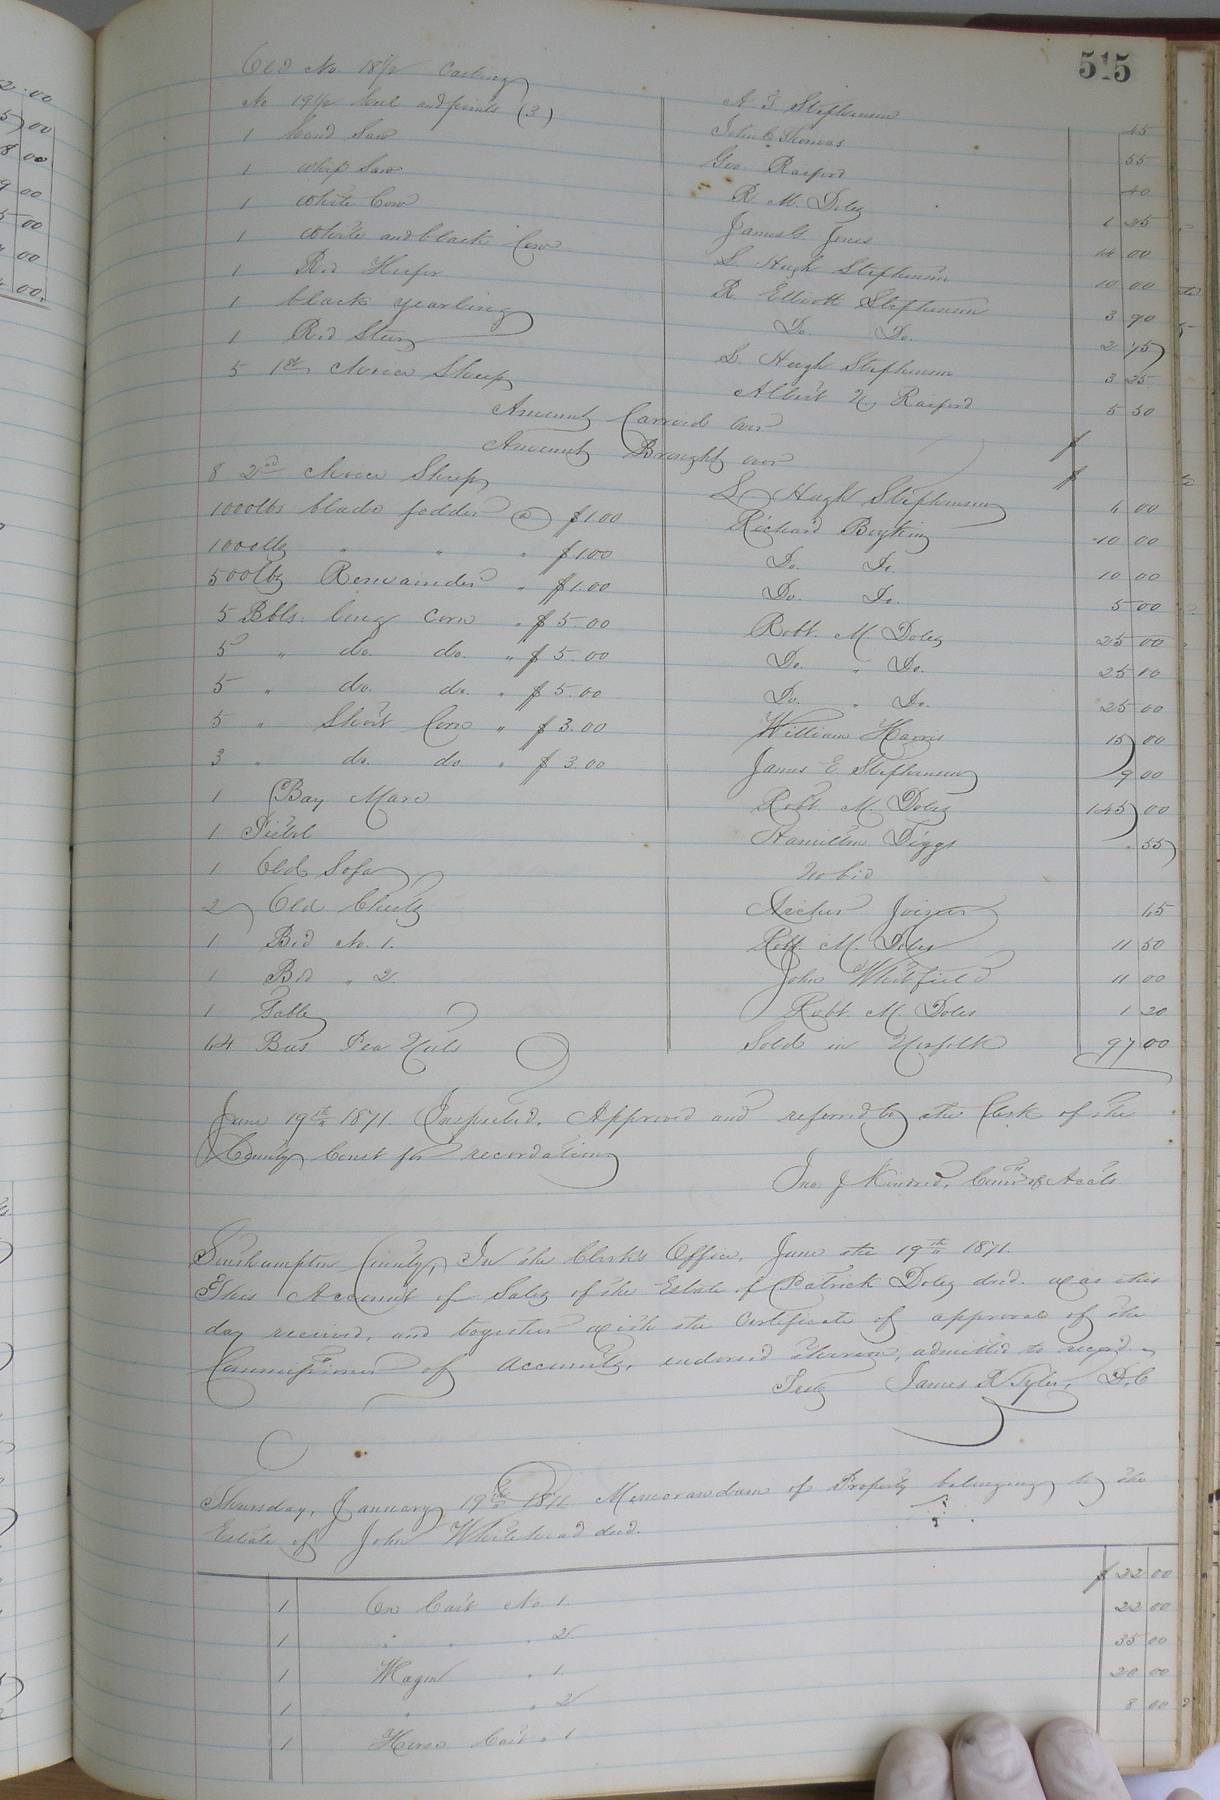 515
Old No 18 1/2 Castings A. T. Stephenson 45
No 19 1/2 heel and points (3) John C. Thomas 55
1 hand Saw Geo. Raiford 40
1 Whip Saw R. M. Doles 1 25
1 White Cow James G. Jones 14 00
1 White and black Cow S. Hugh Stephenson 10 00
1 Red Heifer R. Elliott Stephenson 3 90
1 black yearling Do. Do. 2 75
1 Red Steer S. Hugh Stephenson 3 25
5 1st Choice Sheep Albert N. Raiford 5 50
Amount Carried over $
Amount Brought over $
8 2nd Choice Sheep S. Hugh Stephenson 4 00
1000lbs blade fodder @ $1.00 Richard Boykins 10 00
1000lbs " " " $1.00 Do. Do. 10 00
500lbs Remainder " $1.00 Do. Do. 5 00
5 Bbls. long Corn " $5.00 Robt. M. Doles 25 00
5 " do. do. " $5.00 Do. " Do. 25 00
5 " do. do. " $5.00 Do. " Do. 25 00
5 " Short Corn " $3.00 William Harris 15 00
3 " do. do. " $3.00 James E Stephenson 9 00
1 Bay Mare Robt. M. Doles 145 00
1 Pistol Hamilton Diggs .55
1 Old Sofa No bid
2 Old Chests Archer Joiner 45
1 Bed No. 1. Robt. M. Doles 11 50
1 Bed " 2. John Whitfield 11 00
1 Table Robt M. Doles 1 20
44 Bus Pea Nuts Sold in Norfolk 97 00
June 19th 1871 Inspected, Approved and referred to the Clerk of the
County Court for recordation
Jno. J Kindred, Comr of Accts.
Southampton County, In the Clerk's Office, June the 19th 1871.
This Account of Sales of the Estate of Patrick Doles decd. was this
day received, and together with the Certificate of approval of the
Commissioner of Accounts, endorsed thereon, admitted to record
Teste James R Tyler, D.C
Thursday, January 19th 1871 Memorandum of Property belonging to the
Estate of John Whitehead decd.
1 Ox Cart No 1 $ 22 00
1 " " " 2 22 00
1 Wagon " 1 35 00
1 " " 2 20 00
1 Horse Cart " 1 8 00